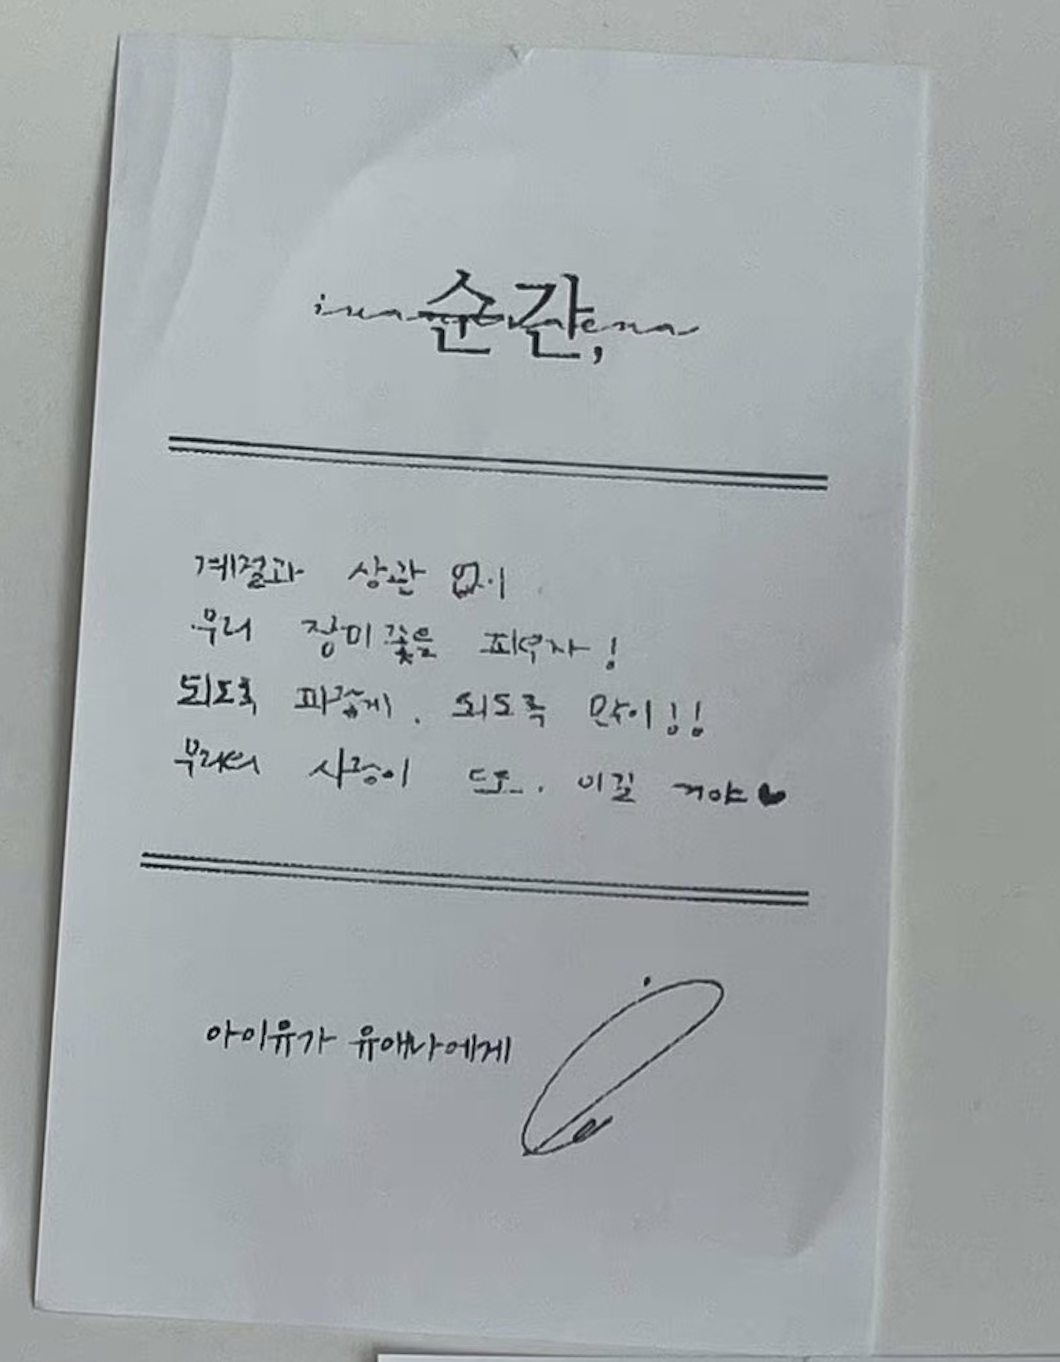 순간,
계절과 상관 없이
우리 장미꽃을 피우자!
되도록 파랗게, 되도록 많이!!
우리의 사랑이 또, 이길 거야♥
아이유가 유애나에게